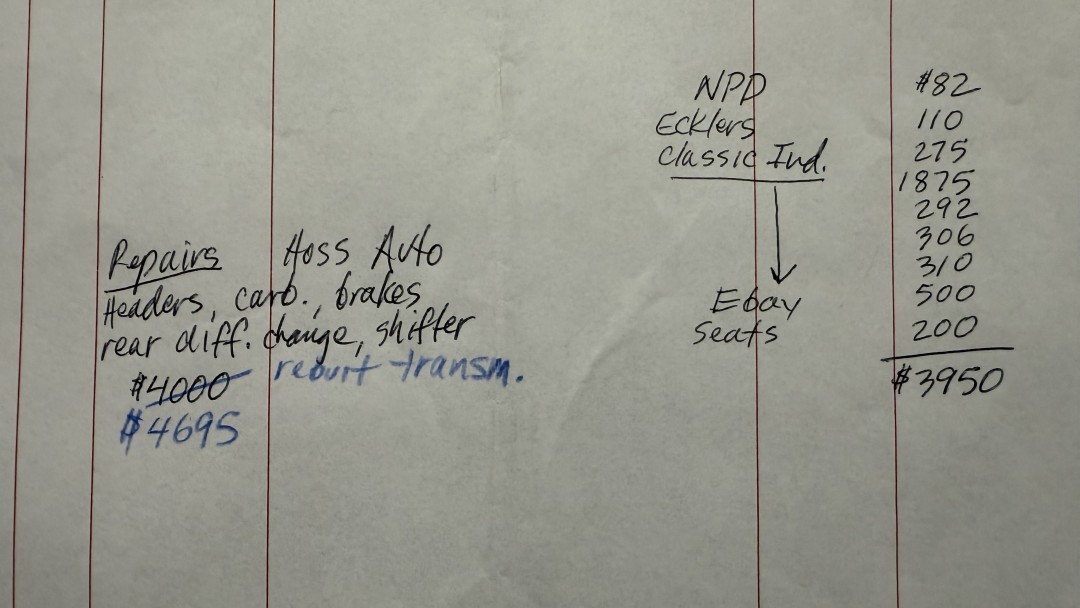 NPD #82
Ecklers 110
Classic Ind. 275
1875
292
306
310
Ebay 500
Seats 200
$3950
Repairs Hoss Auto
Headers, carb., brakes
rear diff. change, shifter
$4000 reburt transm.
$4695